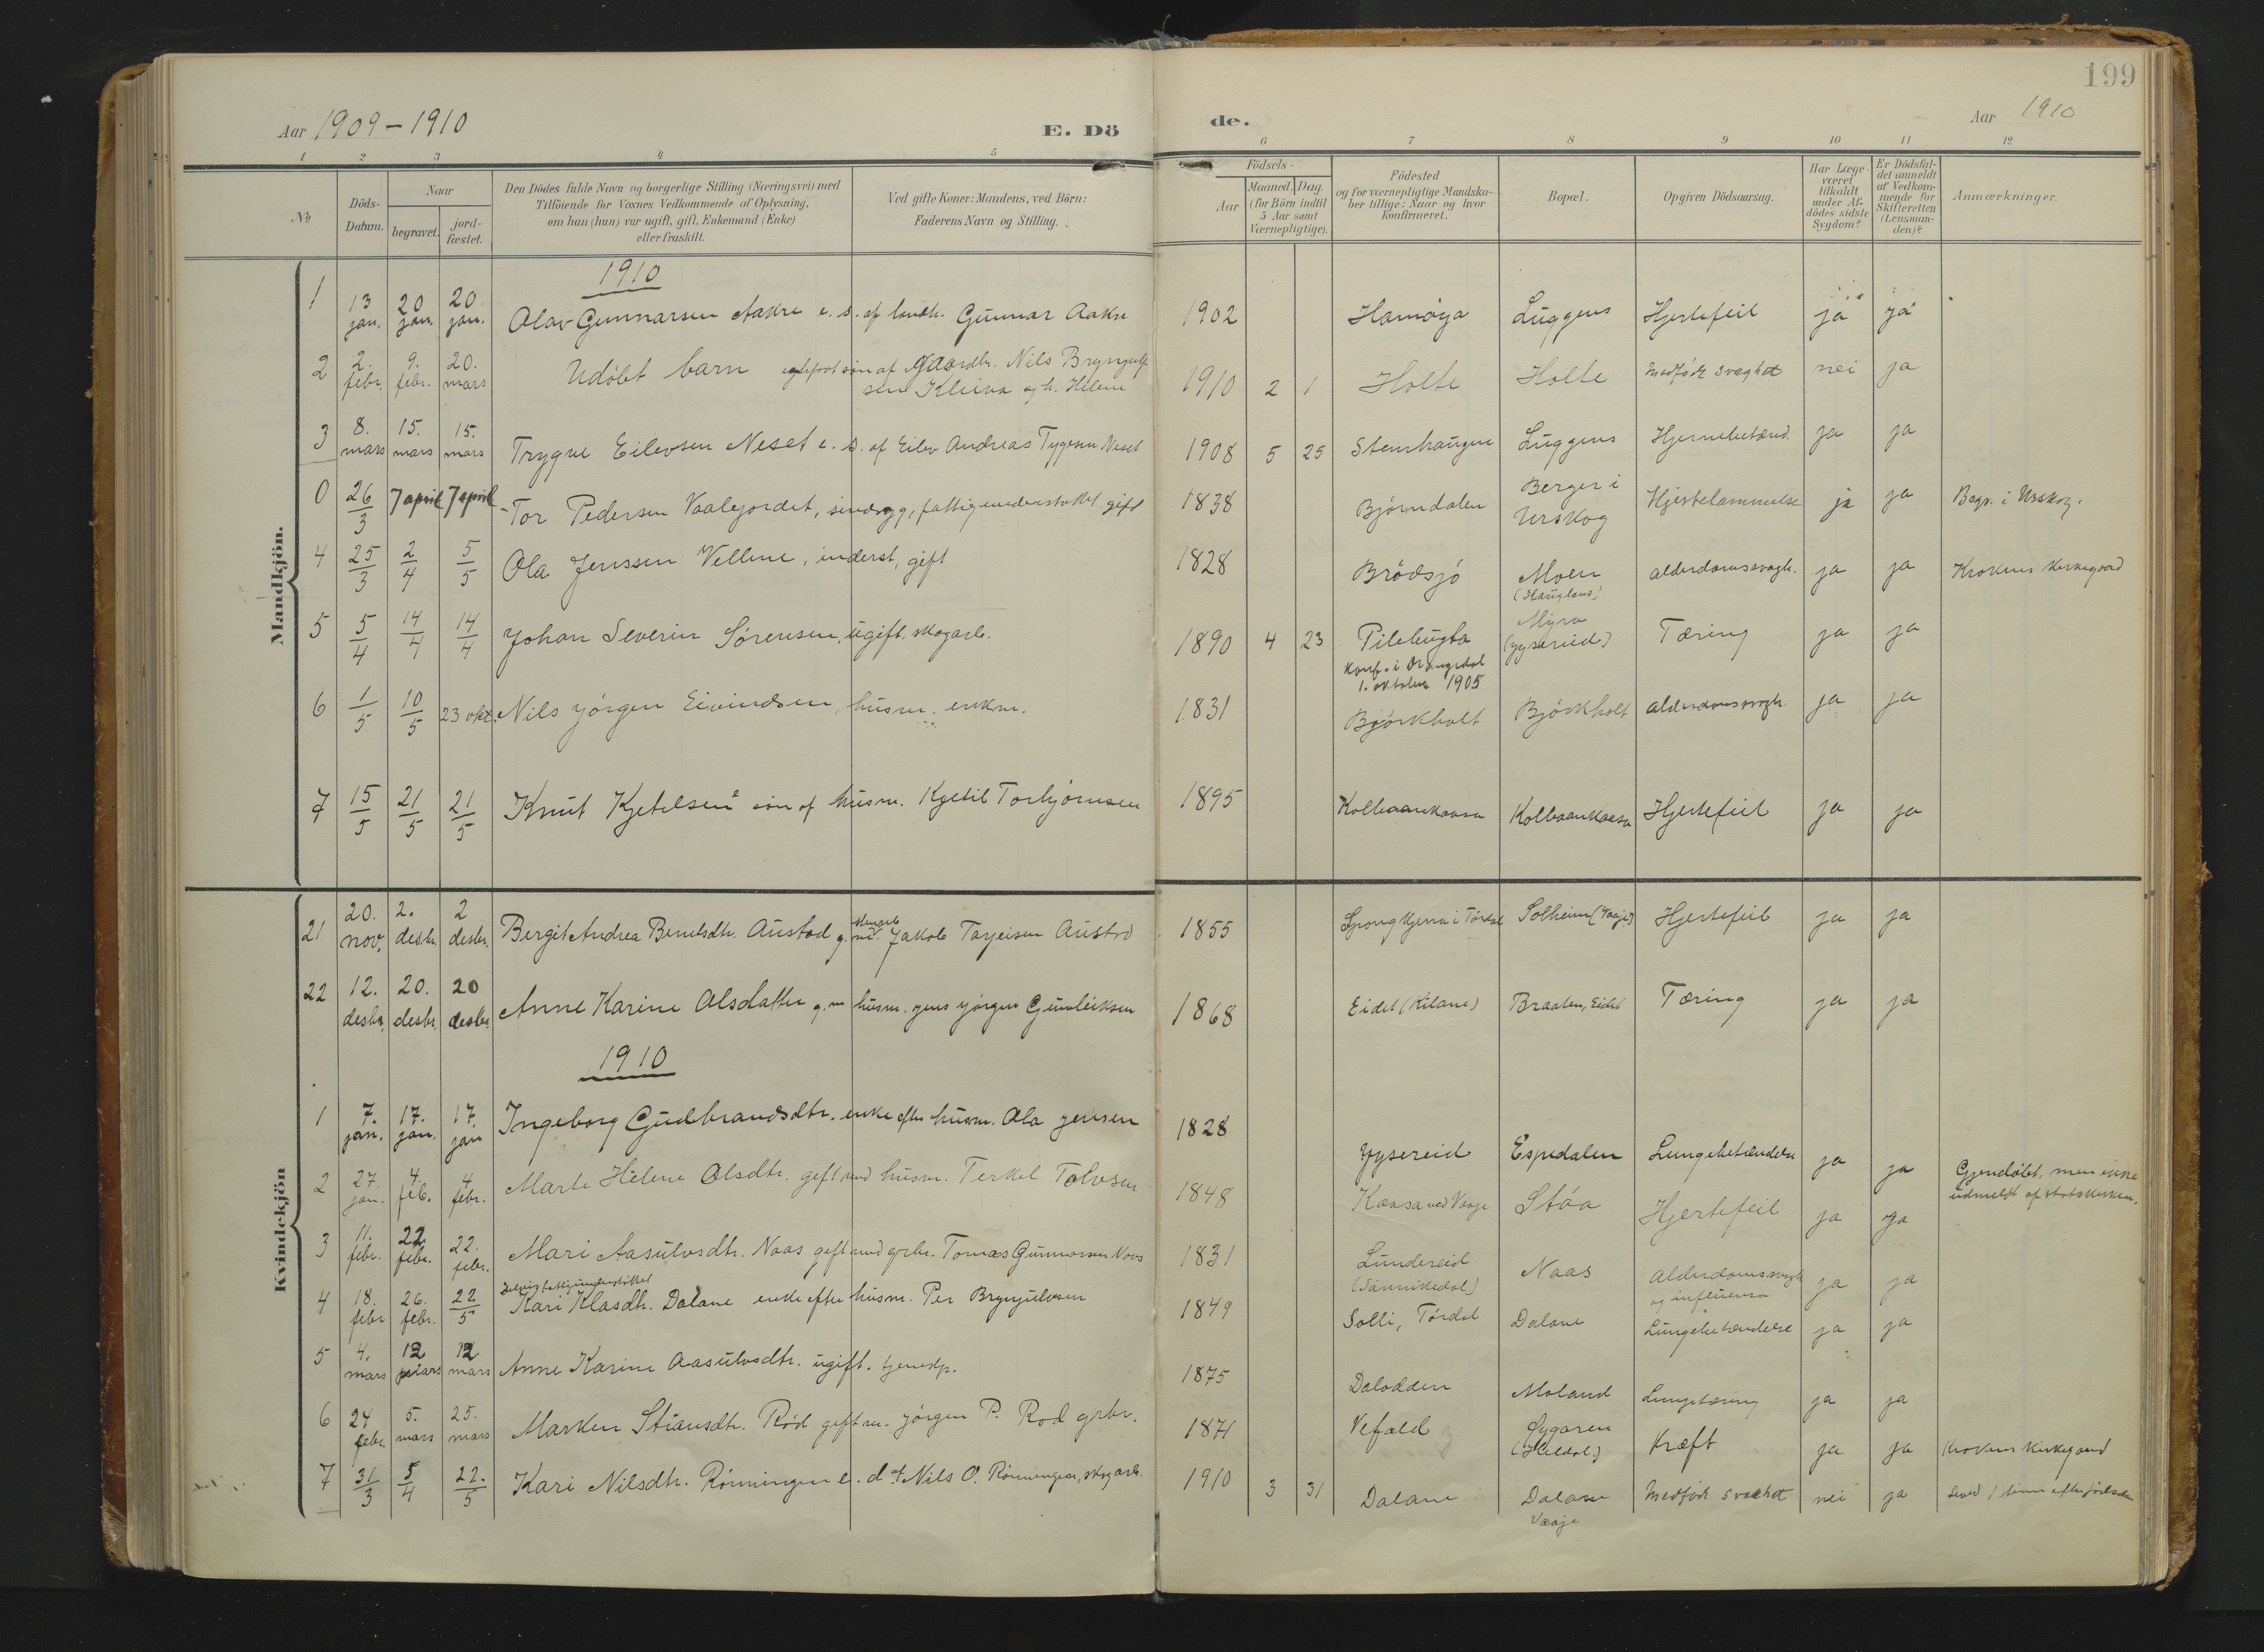 199
Aar 1909-1910
E. Dö
de.
Aar 1910
1 2 3 4 5 6 7 8 9 10 11 12
№
Döds-Datum.
Naar
begravet.
jord-fæstet.
Den Dödes fulde Navn og borgerlige Stilling (Næringsvei) med
Tilföiende for Voxnes Vedkommende af Oplysning,
om han (hun) var ugift, gift, Enkemand (Enke)
eller fraskilt.
Ved gifte Koner: Mandens, ved Börn:
Faderens Navn og Stilling.
Födsels-
Aar
Maaned. Dag.
(for Börn indtil
5 Aar samt
Værnepligtige).
Födested
og for værnepligtige Mandska-
ber tillige: Naar og hvor
konfirmeret.
Bopæl.
Opgiven Dödsaarsag.
Har Læge
været
tilkaldt
under Af-
dödes sidste
Sygdom?
Er Dödsfal-
det anmeldt
af Vedkom-
mende for
Skifteretten
(Lensman-
den)?
Anmærkninger.
Mandkjön.
1910
1 13 jan. 20 jan. 20 jan. Olav Gunnarsen Aakre e. s. af landh. Gunnar Aakre 1902 Hamöya Luggens Hjertefeil ja ja
2 2. febr. 9. febr. 20. mars Udöbt barn egtefödt sön af Gaardbr. Nils Brynjulf
sen Kleiva og h. Helene 1910 2 1 Holte Holte medfödt svaghet nei ja
3 8. mars 15. mars 15. mars Trygve Eilevsen Neset e. s. af Eilev Andreas Tygesen Neset 1908 5 25 Stenhaugen Luggens Hjernebetænd. ja ja
0 26/3 7 april 7 april Tor Pedersen Vaalejordet, sindsyg, fattigunderstöttet gift 1838 Björndalen Berger i
Urskog Hjertelammelse ja ja Begr. i Urskog.
4 25/3 2/4 5/5 Ola Jenssen Vellene, inderst, gift 1828 Brödsjö Moen
(Hauglens) alderdomssvagh. ja ja Krokens kirkegaard
5 5/4 14/4 14/4 Johan Severin Sörensen, ugift, skogarb. 1890 4 23 Pilebugta
konf. i Drangedal
1. oktober 1905 Myra
(Gysereid) Tæring ja ja
6 1/5 10/5 23 okt. Nils Jörgen Eivindsen, husm. enkm. 1831 Björkholt Björkholt alderdomssvagh. ja ja
7 15/5 21/5 21/5 Knut Kjetelsen sön af husm. Kjetil Torbjörnsen 1895 Kolbaankaasa Kolbaankaasa Hjertefeil ja ja
Kvindekjön
21 20. nov. 2. desbr. 2 desbr. Bergit Andrea Berntsdtr. Austad g. m. Jakob Tarjeisen Austad 1855 Grongkjenn i Tördal Solheim (Vaaje) Hjertefeil ja ja
22 12. desbr. 20. desbr. 20 desbr. Anne Karine Olsdatter g. m. husm. Jens Jörgen Gunleiksen 1868 Eidet (Kilane) Braaten, Eidet Tæring ja ja
1910
1 7. jan. 17. jan. 17. jan Ingeborg Gudbrandsdtr. enke efter husm. Ola Jensen 1828 Gysereid Espedalen Lungebetændelse ja ja Gjendöbt, men ikke
udmeldt af statskirken.
2 27. jan. 4. feb. 4 febr. Marte Helene Olsdtr. gift med husm. Terkel Tolvsen 1848 Kaasa ved Vaaje Stöa Hjertefeil ja ja
3 11. febr. 22. febr. 22. febr. Mari Aasulvsdtr. Naas gift med grbr. Tomas Gunnarsen Naas 1831 Lundereid
(Sannikedal) Naas alderdomssvagh
og influensa ja ja
4 18. febr 26. febr. 22/5 Kari Klasdtr. Dalane enke efter husm. Per Brynjulvsen 1849 Solli, Tördal Dalane Lungebetændelse ja ja
5 4. mars 12 mars 12 mars Anne Karine Aasulvsdtr. ugift. tjenestp. 1875 Dalodden Moland Lungetæring ja ja
6 24 febr. 5. mars 25. mars Marken Stiansdtr. Röd gift m. Jörgen P. Röd grbr. 1871 Vefald Öygaren
(Heldal) Kræft ja ja Krokens kirkegaard
7 31/3 5/4 22./5 Kari Nilsdtr. Rönningen e. d. af Nils O. Rönningen, skogarb. 1910 3 31 Dalane Dalane
Vaaje medfödt svakhet nei ja Leved 1 time efter födselen